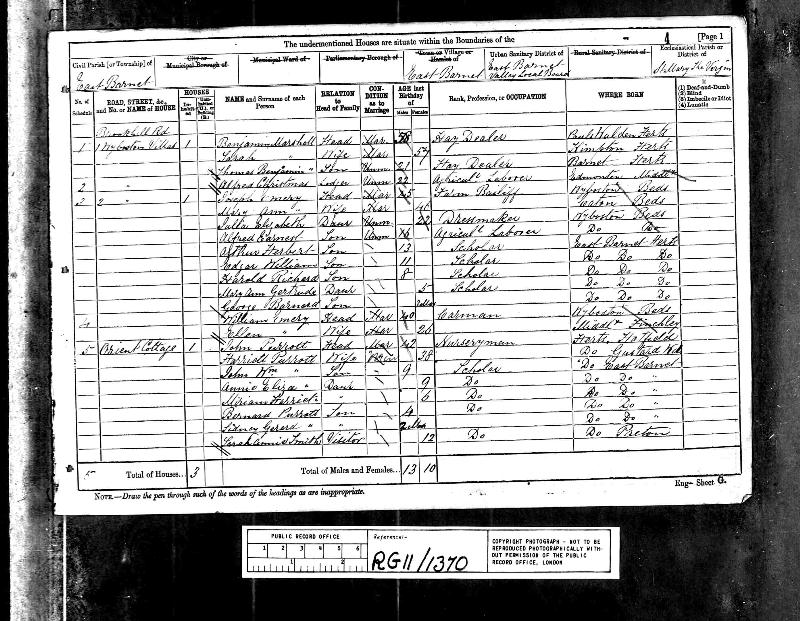 The undermentioned Houses are situate within the Boundaries of the
4
[Page 1
Civil Parish [or Township] of
City or Municipal Borough of
Municipal Ward of
Parliamentary Borough of
Town or Village or Hamlet of
Urban Sanitary District of
Rural Sanitary District of
Ecclesiastical Parish or District of
East Barnet
East Barnet
East Barnet Valley Local Board
St Mary The Virgin
No. of Schedule
ROAD, STREET, &c., and No. or NAME of HOUSE
HOUSES
Inhabited
Uninhabited (U.), or Building (B.)
NAME and Surname of each Person
RELATION to Head of Family
CONDITION as to Marriage
AGE last Birthday of
Males
Females
Rank, Profession, or OCCUPATION
WHERE BORN
If
(1) Deaf-and-Dumb
(2) Blind
(3) Imbecile or Idiot
(4) Lunatic
Brookhill Rd
1 1 Wyboston Villas 1 Benjamin Marshall Head Mar 58 Hay Dealer Pauls Walden Herts
Sarah " Wife Mar 57 Kimpton Herts
Thomas Benjamin " Son Unm 21 Hay Dealer Barnet Herts
2 " Alfred Christmas Lodger Unm 22 Agricul Labourer Edmonton Middx
3 2 1 Joseph Emery Head Mar 45 Farm Bailiff Wyboston Beds
Mary Ann " Wife Mar 46 Eaton Beds
Julia Elizabeth Daur Unm 22 Dressmaker Wyboston Beds
Alfred Earnest Son Unm 16 Agricul Laborer Do Do
Arthur Herbert Son 13 Scholar East Barnet Herts
Edgar William Son 11 Scholar Do Do Do
Harold Richard Son 8 Scholar Do Do Do
Mary Ann Gertrude Daur 5 Scholar Do Do Do
George Barnard Son Do Do Do
4 William Emery Head Mar 40 Carman Wyboston Beds
Ellen " Wife Mar 26 Middx Finchley
5 Orient Cottage 1 John Purrott Head Mar 42 Nurseryman Herts Hatfield
Harriett Purrott Wife 38 Do
John Wm " Son 9 Scholar Do East Barnet
Annie Eliza " Daur 9 Do Do Do "
Miriam Harriet " " 6 Do Do Do "
Bernard Purrott Son 4 Do Do Do "
Sidney Gerard " " Do Do "
Sarah Annie Smith Visitor 12 Do Do Preton
5 Total of Houses... 3
Total of Males and Females... 13 10
NOTE.—Draw the pen through such of the words of the headings as are inappropriate.
Eng—Sheet G.
PUBLIC RECORD OFFICE
1 2 3 4 5 6
1 2
Reference:-
RG11/1370
COPYRIGHT PHOTOGRAPH - NOT TO BE REPRODUCED PHOTOGRAPHICALLY WITHOUT PERMISSION OF THE PUBLIC RECORD OFFICE, LONDON